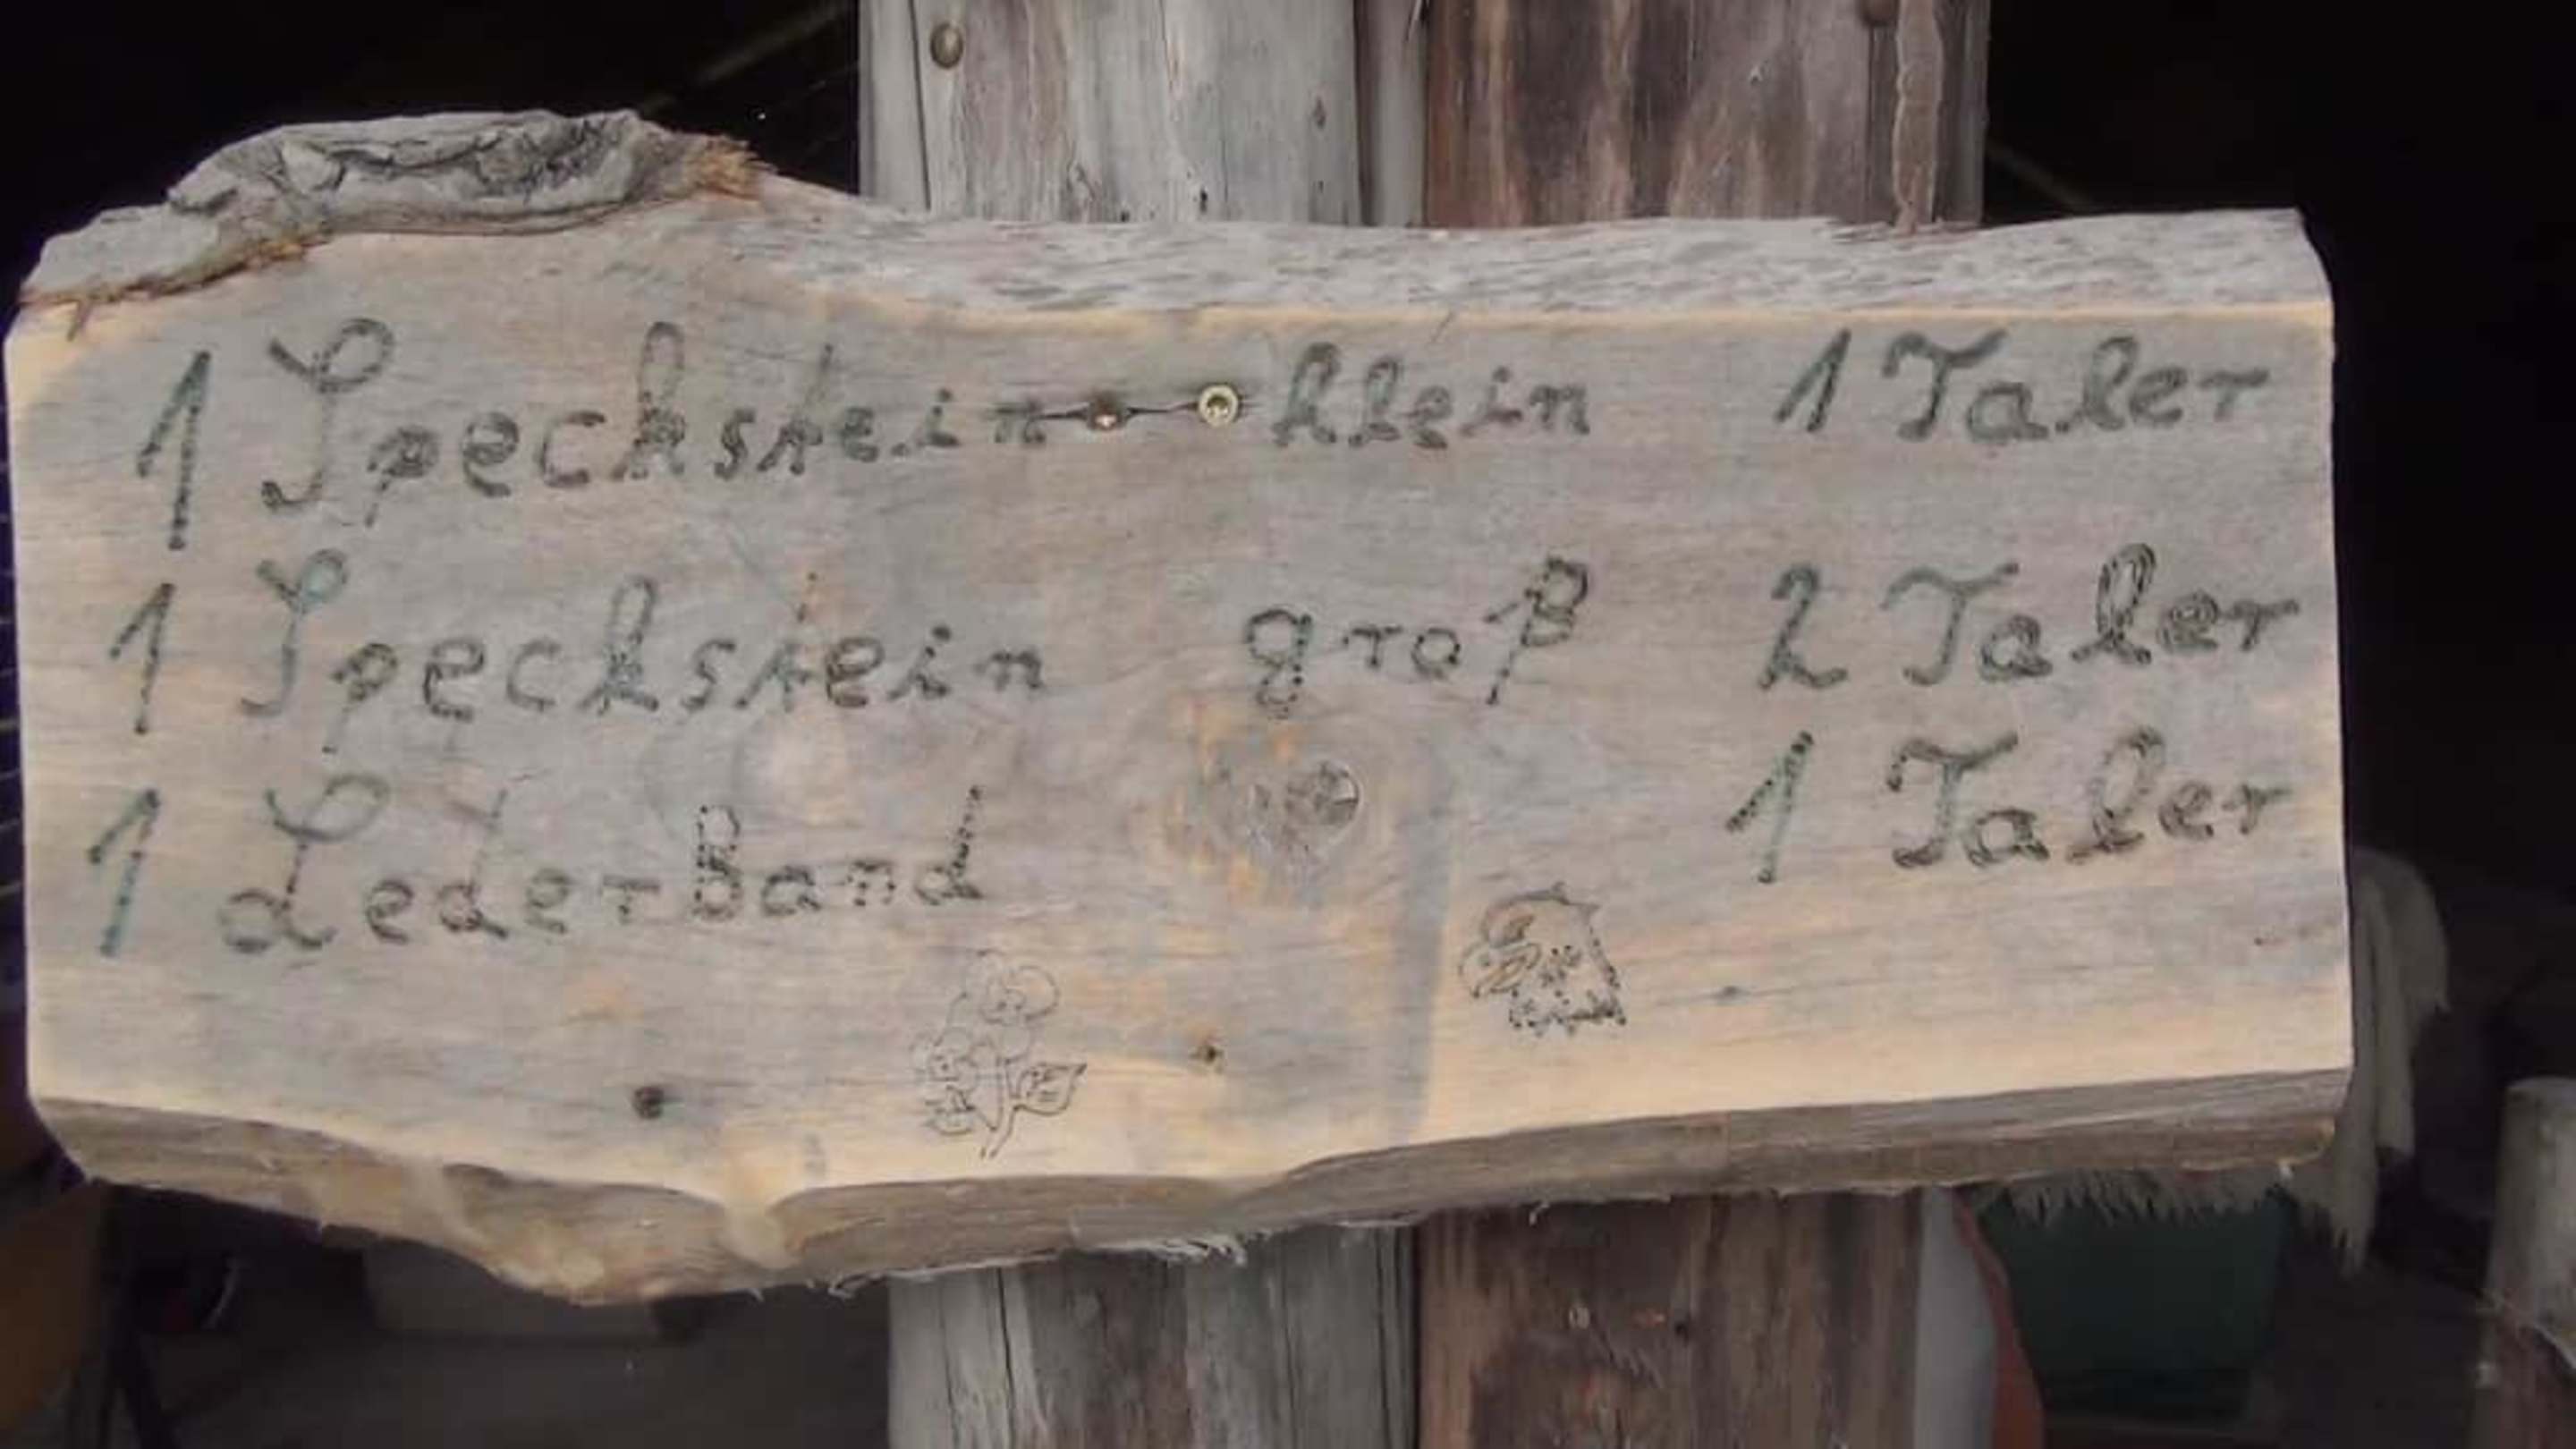 1 Speckstein klein 1 Taler
1 Speckstein groß 2 Taler
1 LederBand 1 Taler